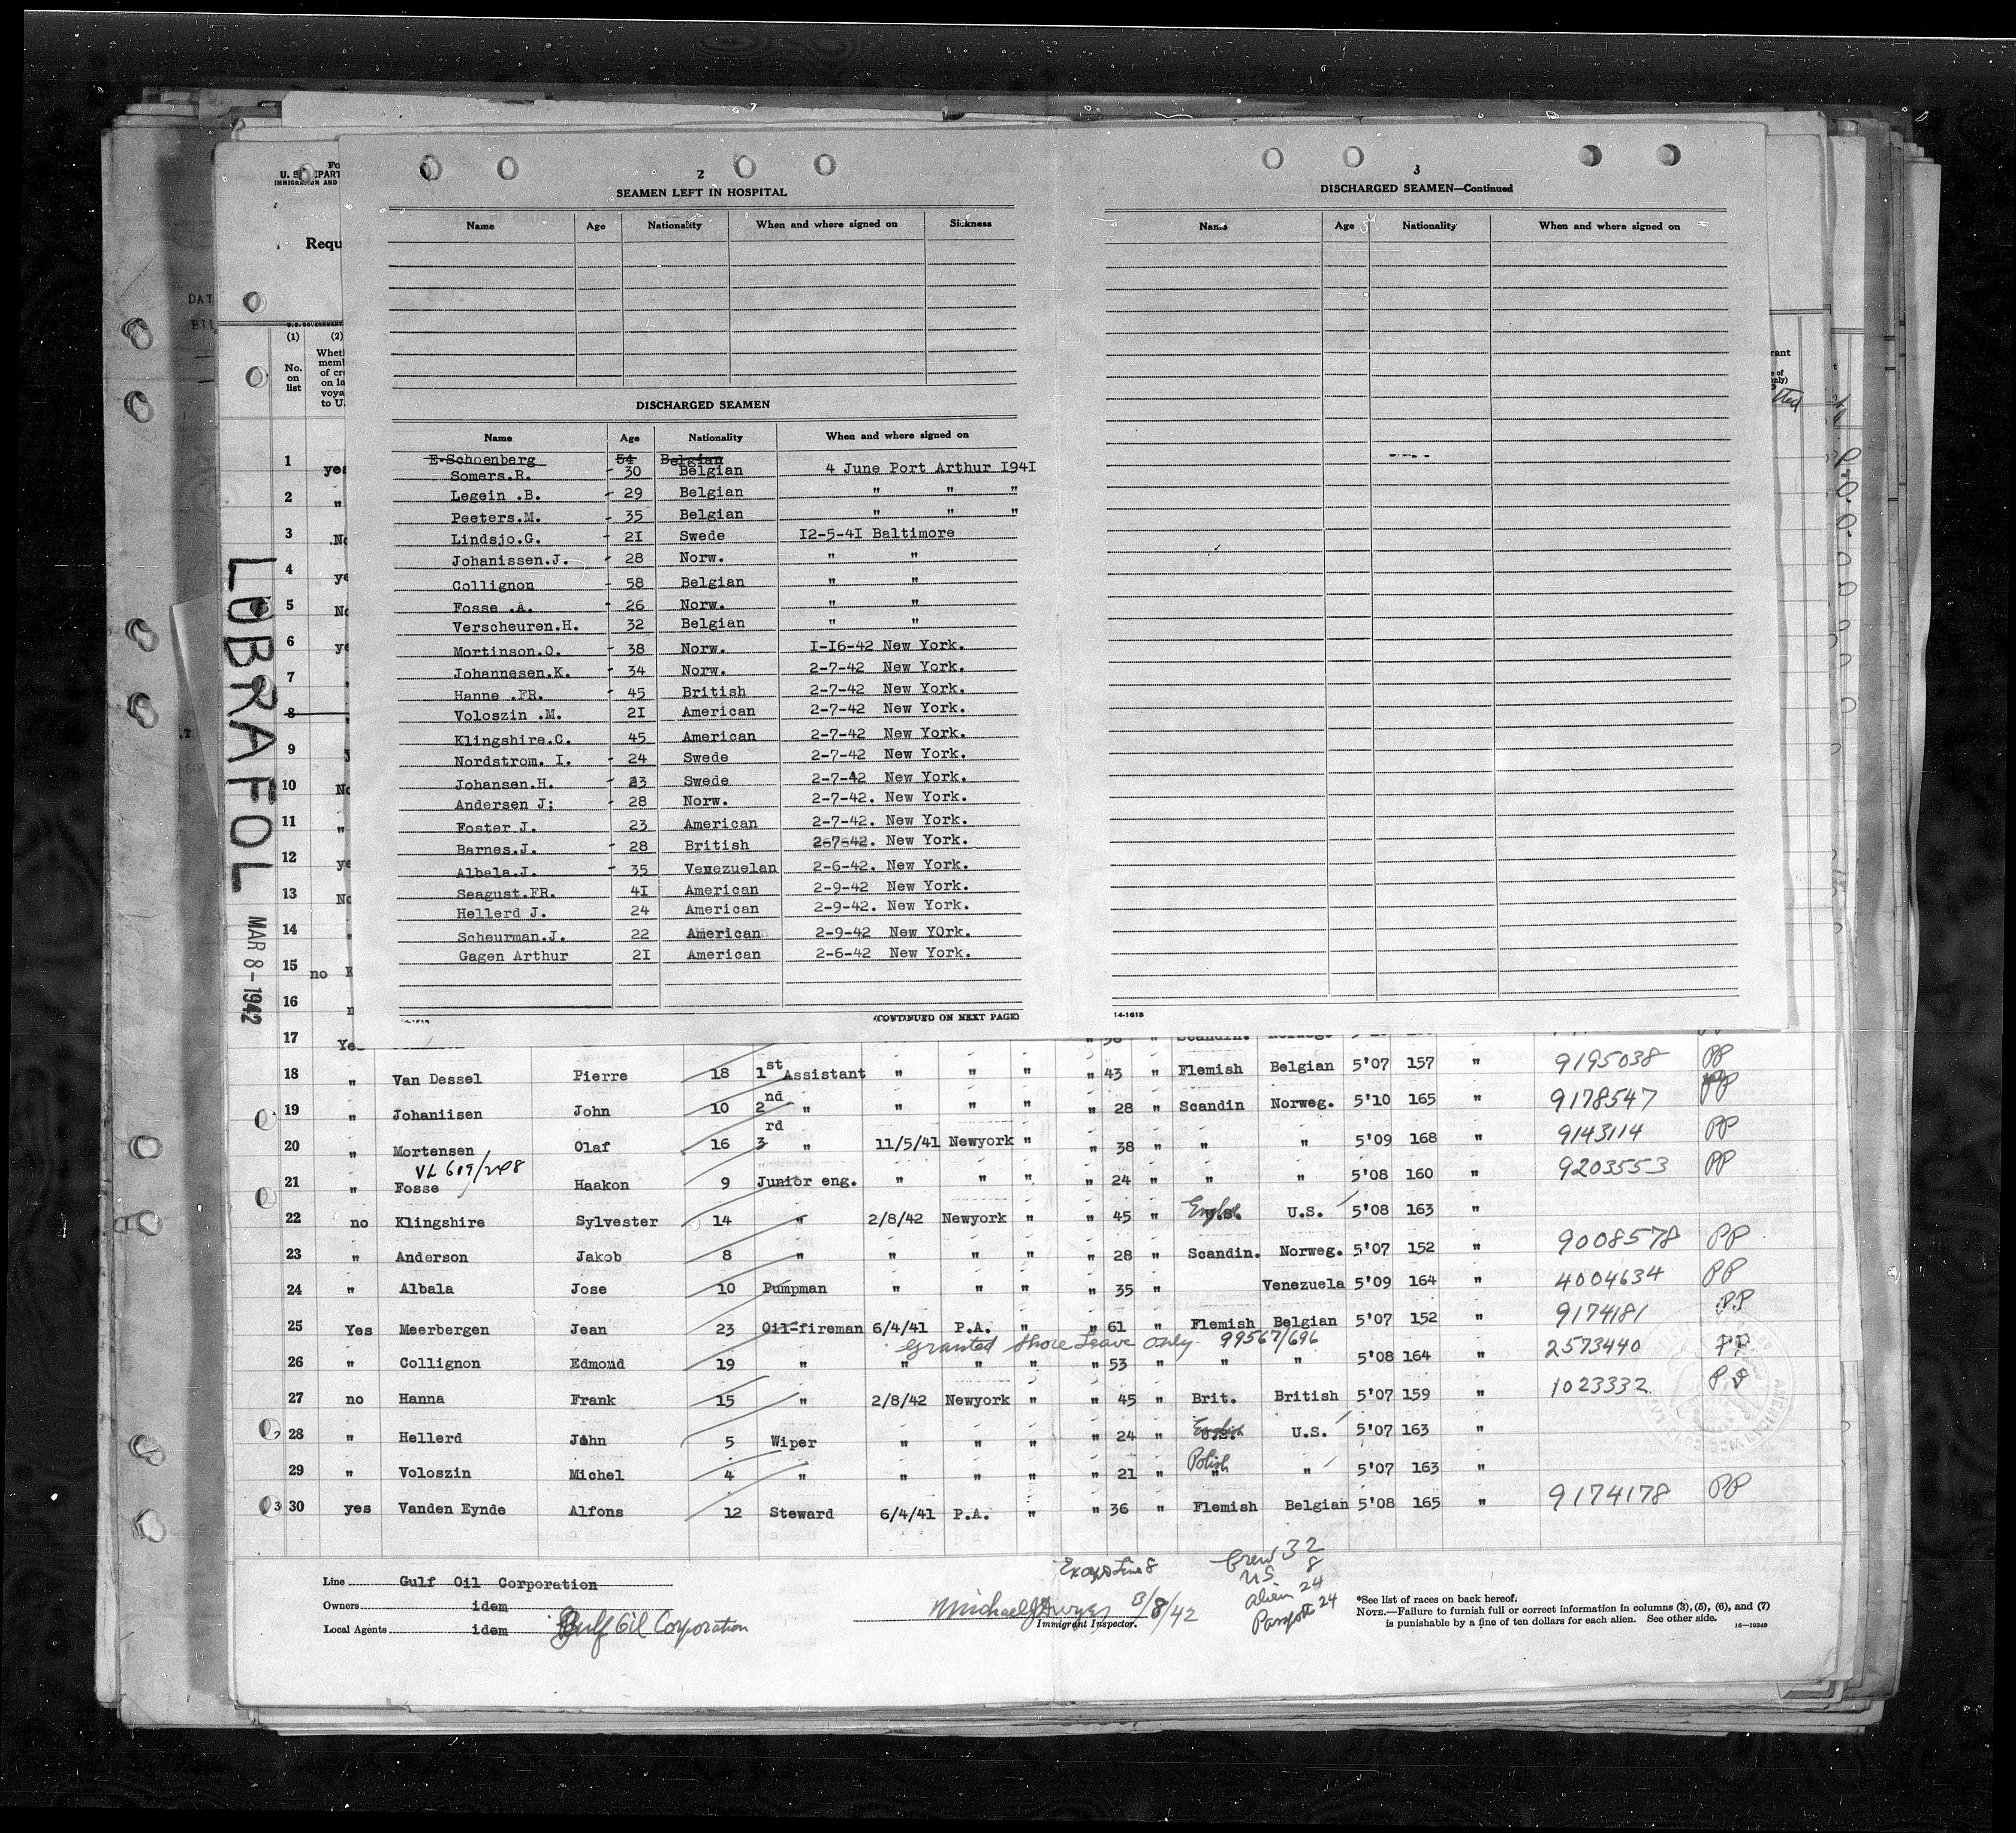 2
SEAMEN LEFT IN HOSPITAL
Name Age Nationality When and where signed on Sickness
DISCHARGED SEAMEN
Name Age Nationality When and where signed on
E.Schoenberg 54 Belgian
Somers.R. 30 Belgian 4 June Port Arthur I94I
Legein .B. 29 Belgian " " "
Peeters.M. 35 Belgian " " "
Lindsjo.G. 2I Swede I2-5-4I Baltimore
Johanissen.J. 28 Norw. " "
Collignon 58 Belgian " "
Fosse .A. 26 Norw. " "
Verscheuren.H. 32 Belgian " "
Mortinson.O. 38 Norw. I-I6-42 New York.
Johannesen.K. 34 Norw. 2-7-42 New York.
Hanne .FR. 45 British 2-7-42 New York.
Voloszin .M. 2I American 2-7-42 New York.
Klingshire.C. 45 American 2-7-42 New York.
Nordstrom. I. 24 Swede 2-7-42 New York.
Johansen.H. 23 Swede 2-7-42 New York.
Andersen J; 28 Norw. 2-7-42. New York.
Foster J. 23 American 2-7-42. New York.
Barnes.J. 28 British 267642. New York.
Albala.J. 35 Venezuelan 2-6-42. New York.
Seagust.FR. 4I American 2-9-42 New York.
Hellerd J. 24 American 2-9-42. New York.
Scheurman.J. 22 American 2-9-42 New YOrk.
Gagen Arthur 2I American 2-6-42 New York.
(CONTINUED ON NEXT PAGE)
3
DISCHARGED SEAMEN—Continued
Name Age Nationality When and where signed on
14-1613
U. S. DEPART
IMMIGRATION AND
Requ
(1) (2)
No. on list
Wheth
memb
of cr
on la
voya
to U.
1 yes
2 "
3 No
4 ye
5 No
6 ye
7
8
9
10 No
11 "
12 ye
13 No
14
15 no
16
17 Yes
LUBRAFOL
MAR 8-1942
18 " Van Dessel Pierre 18 1st Assistant " " " " 43 " Flemish Belgian 5'07 157 " 9195038 PP
19 " Johaniisen John 10 2nd " " " " " 28 " Scandin Norweg. 5'10 165 " 9178547 PP
20 " Mortensen Olaf 16 3rd " 11/5/41 Newyork " " 38 " " " 5'09 168 " 9143114 PP
VL 619/208
21 " Fosse Haakon 9 Junior eng. " " " " 24 " " " 5'08 160 " 9203553 PP
22 no Klingshire Sylvester 14 " 2/8/42 Newyork " " 45 " English U.S. 5'08 163 "
23 " Anderson Jakob 8 " " " " " 28 " Scandin. Norweg. 5'07 152 " 9008578 PP
24 " Albala Jose 10 Pumpman " " " " 35 " Venezuela 5'09 164 " 4004634 PP
25 Yes Meerbergen Jean 23 Oil-fireman 6/4/41 P.A. " " 61 " Flemish Belgian 5'07 152 " 9174181 PP
Granted Shore Leave Only 99567/696
26 " Collignon Edmond 19 " " " " " 53 " " " 5'08 164 " 2573440 PP
27 no Hanna Frank 15 " 2/8/42 Newyork " " 45 " Brit. British 5'07 159 " 1023332 PP
28 " Hellerd John 5 Wiper " " " " 24 " English U.S. 5'07 163 "
29 " Voloszin Michel 4 " " " " " 21 " Polish " 5'07 163 "
30 yes Vanden Eynde Alfons 12 Steward 6/4/41 P.A. " " 36 " Flemish Belgian 5'08 165 " 9174178 PP
Line Gulf Oil Corporation
Owners idem
Local Agents idem Gulf Oil Corporation
Except Line 8
Michael J Dwyer 3/8/42
Immigrant Inspector.
Crew 32
US 8
Alien 24
Passports 24
*See list of races on back hereof.
NOTE.—Failure to furnish full or correct information in columns (3), (5), (6), and (7)
is punishable by a fine of ten dollars for each alien. See other side.
16—19349